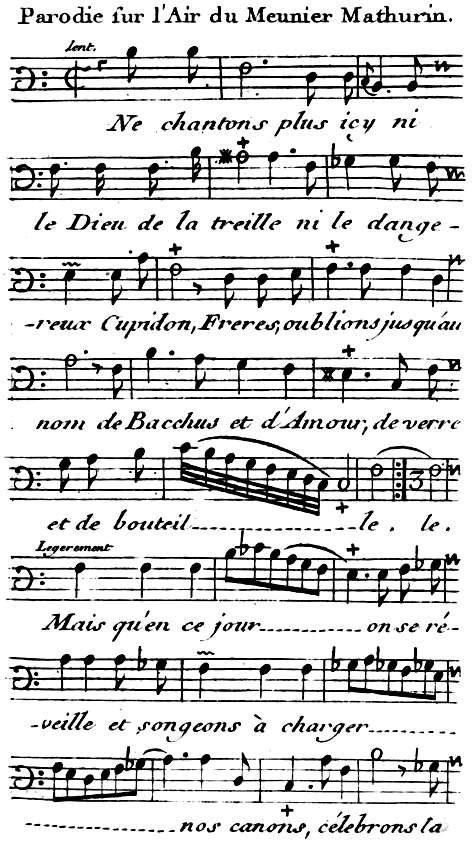 Parodie sur l'Air du Meunier Mathurin.
lent.
Ne chantons plus içy ni
le Dieu de la treille ni le dange-
-reux Cupidon, Freres, oublions jusqu'au
nom de Bacchus et d'Amour, de verre
et de bouteil............le. le.
Legerement
Mais qu'en ce jour............on se ré-
-veille et songeons à charger............
............nos canons, célebrons la